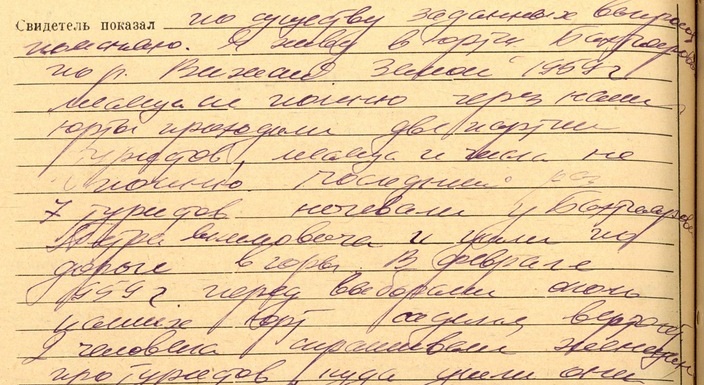 Свидетель показал по существу заданных вопросов
поясняю. Я живу в юрти Бахтиярова
по р. Вижай Зимой 1959 г
месяца не помню через наши
юрты проходили две партии
туристов, месяца и числа не
помню. Последний раз
7 туристов ночевали у Бахтиярова
Петра и шли по
дороге в горы. В феврале
1959 г перед выборами около
наших юрт садился вертолет
2 человека спрашивали женщин
про туристов куда ушли они